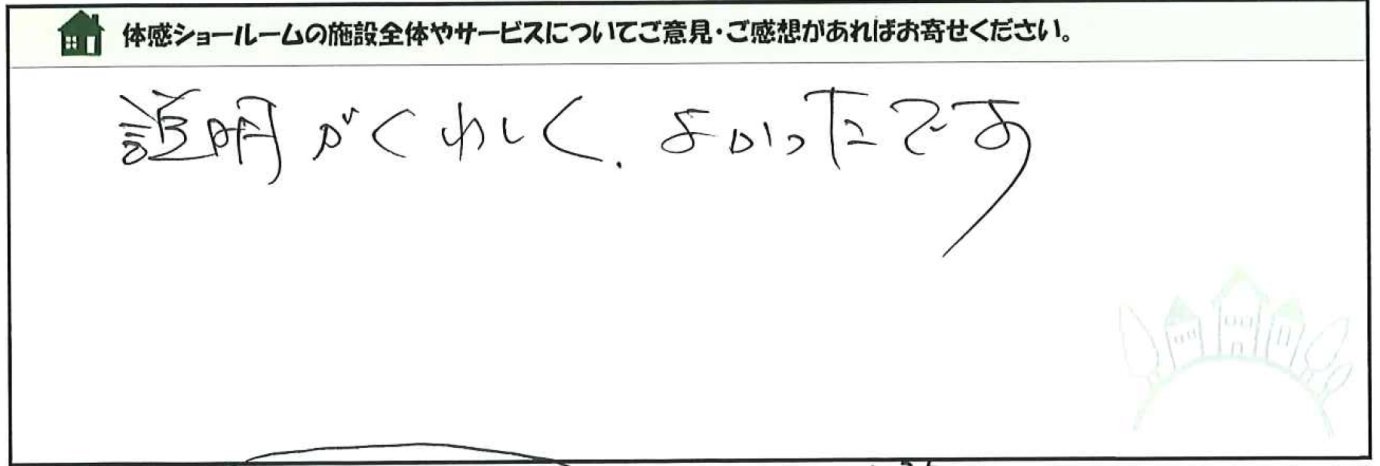 体感ショールームの施設全体やサービスについてご意見・ご感想があればお寄せください。
説明がくわしく、よかったです